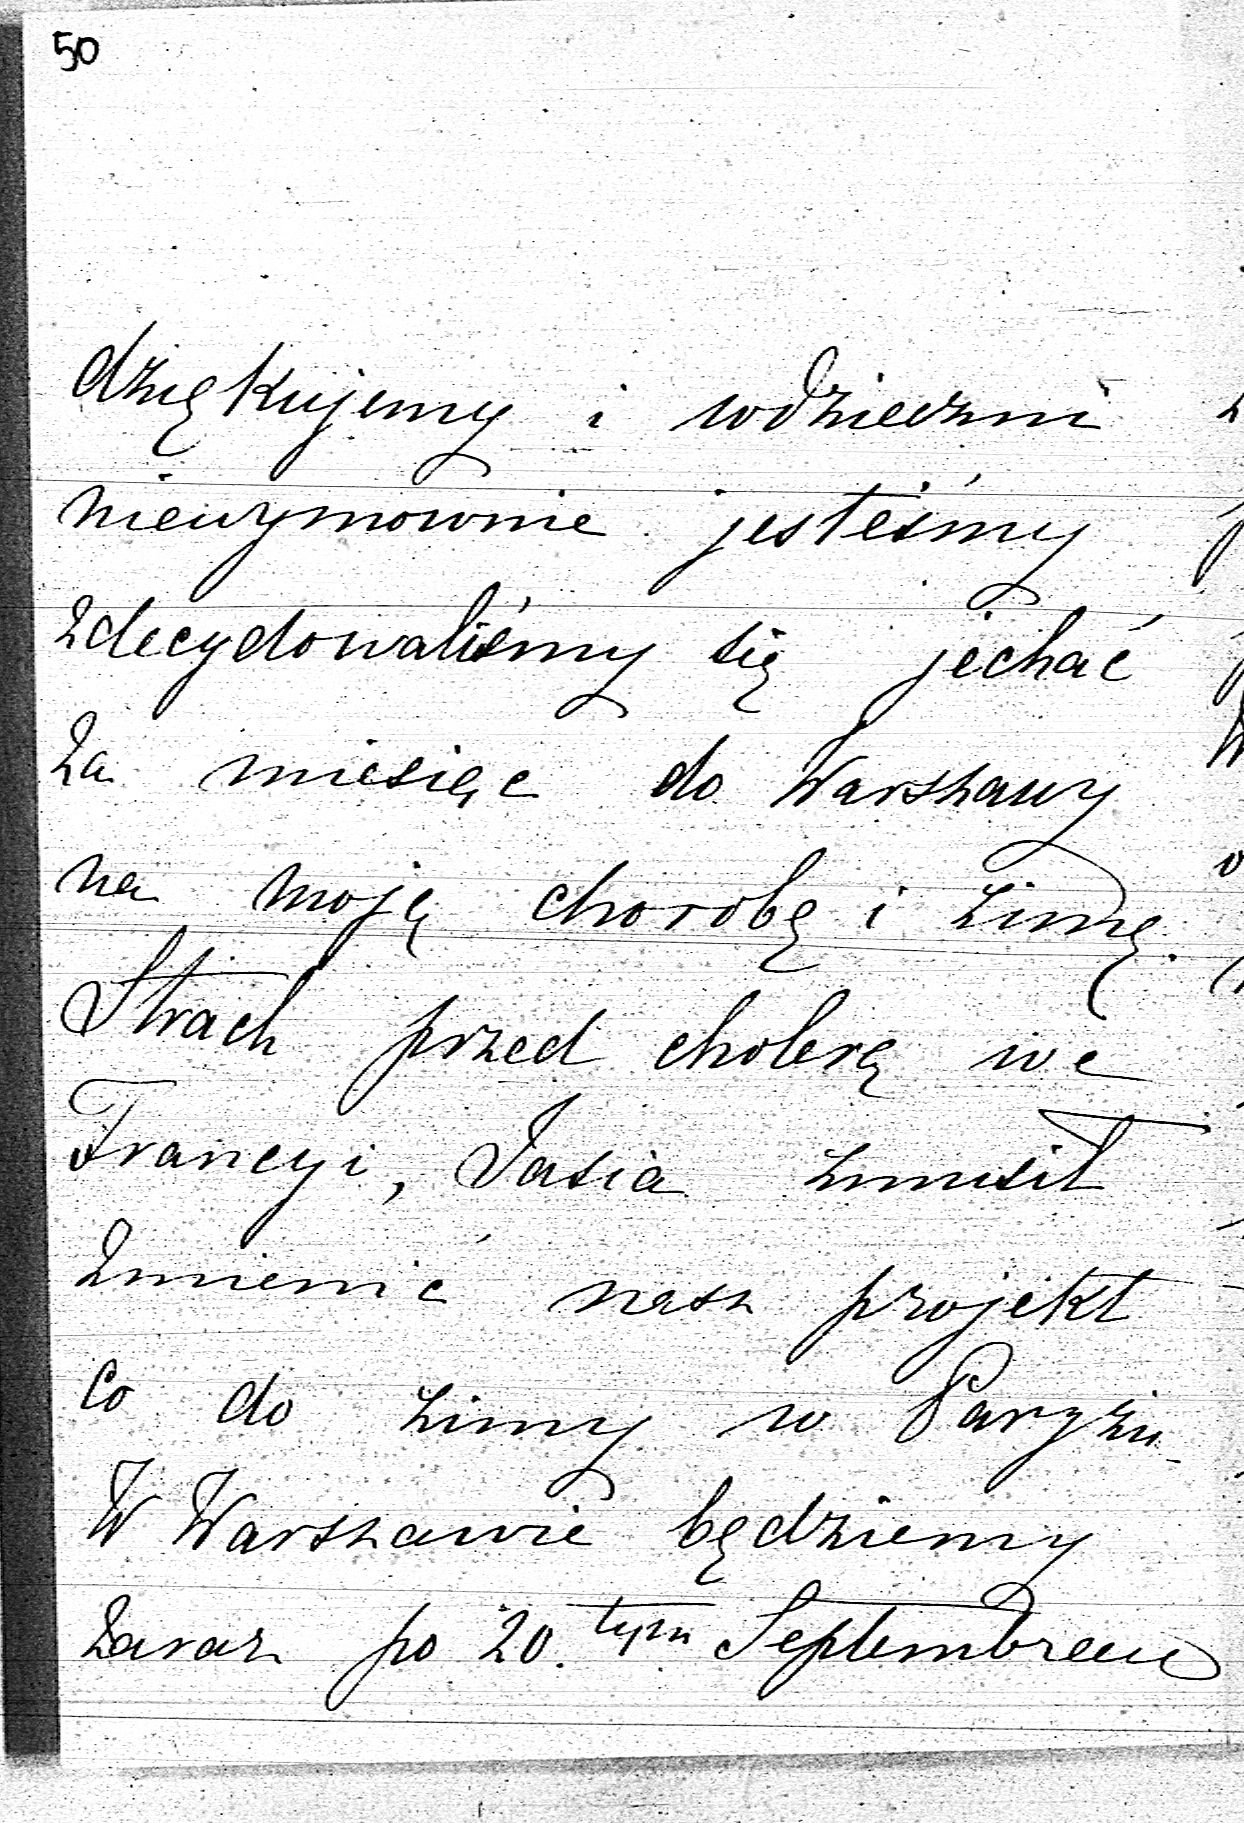 50
dziękujemy i wdzieczni
niewymownie jesteśmy
zdecydowaliśmy się jechać
za miesiąc do Warszawy
na moją chorobę i zimę.
Strach przed cholerą we
Francyi, Jasia zmusił
zmienić nasz projekt
co do zimy w Paryżu
W Warszawie będziemy
zaraz po 20.tym Septembrem